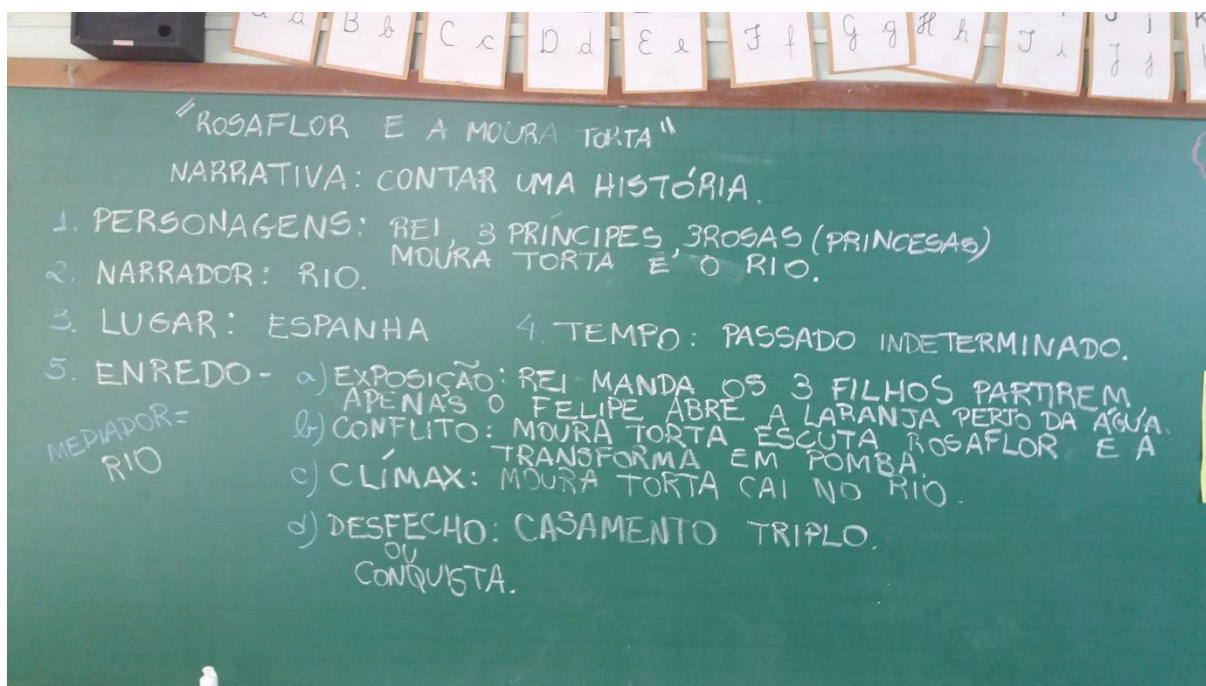 a a
B b
C c
D d
E e
F f
G g
H h
I i
J j
J j
"ROSAFLOR E A MOURA TORTA"
NARRATIVA: CONTAR UMA HISTÓRIA.
1. PERSONAGENS: REI, 3 PRÍNCIPES, 3 ROSAS (PRINCESAS)
MOURA TORTA E O RIO.
2. NARRADOR: RIO.
3. LUGAR: ESPANHA 4. TEMPO: PASSADO INDETERMINADO.
5. ENREDO - a) EXPOSIÇÃO: REI MANDA OS 3 FILHOS PARTIREM
APENAS O FELIPE ABRE A LARANJA PERTO DA ÁGUA.
b) CONFLITO: MOURA TORTA ESCUTA ROSAFLOR E A
TRANSFORMA EM POMBA.
MEDIADOR=
RIO
c) CLÍMAX: MOURA TORTA CAI NO RIO.
d) DESFECHO: CASAMENTO TRIPLO.
OU
CONQUISTA.